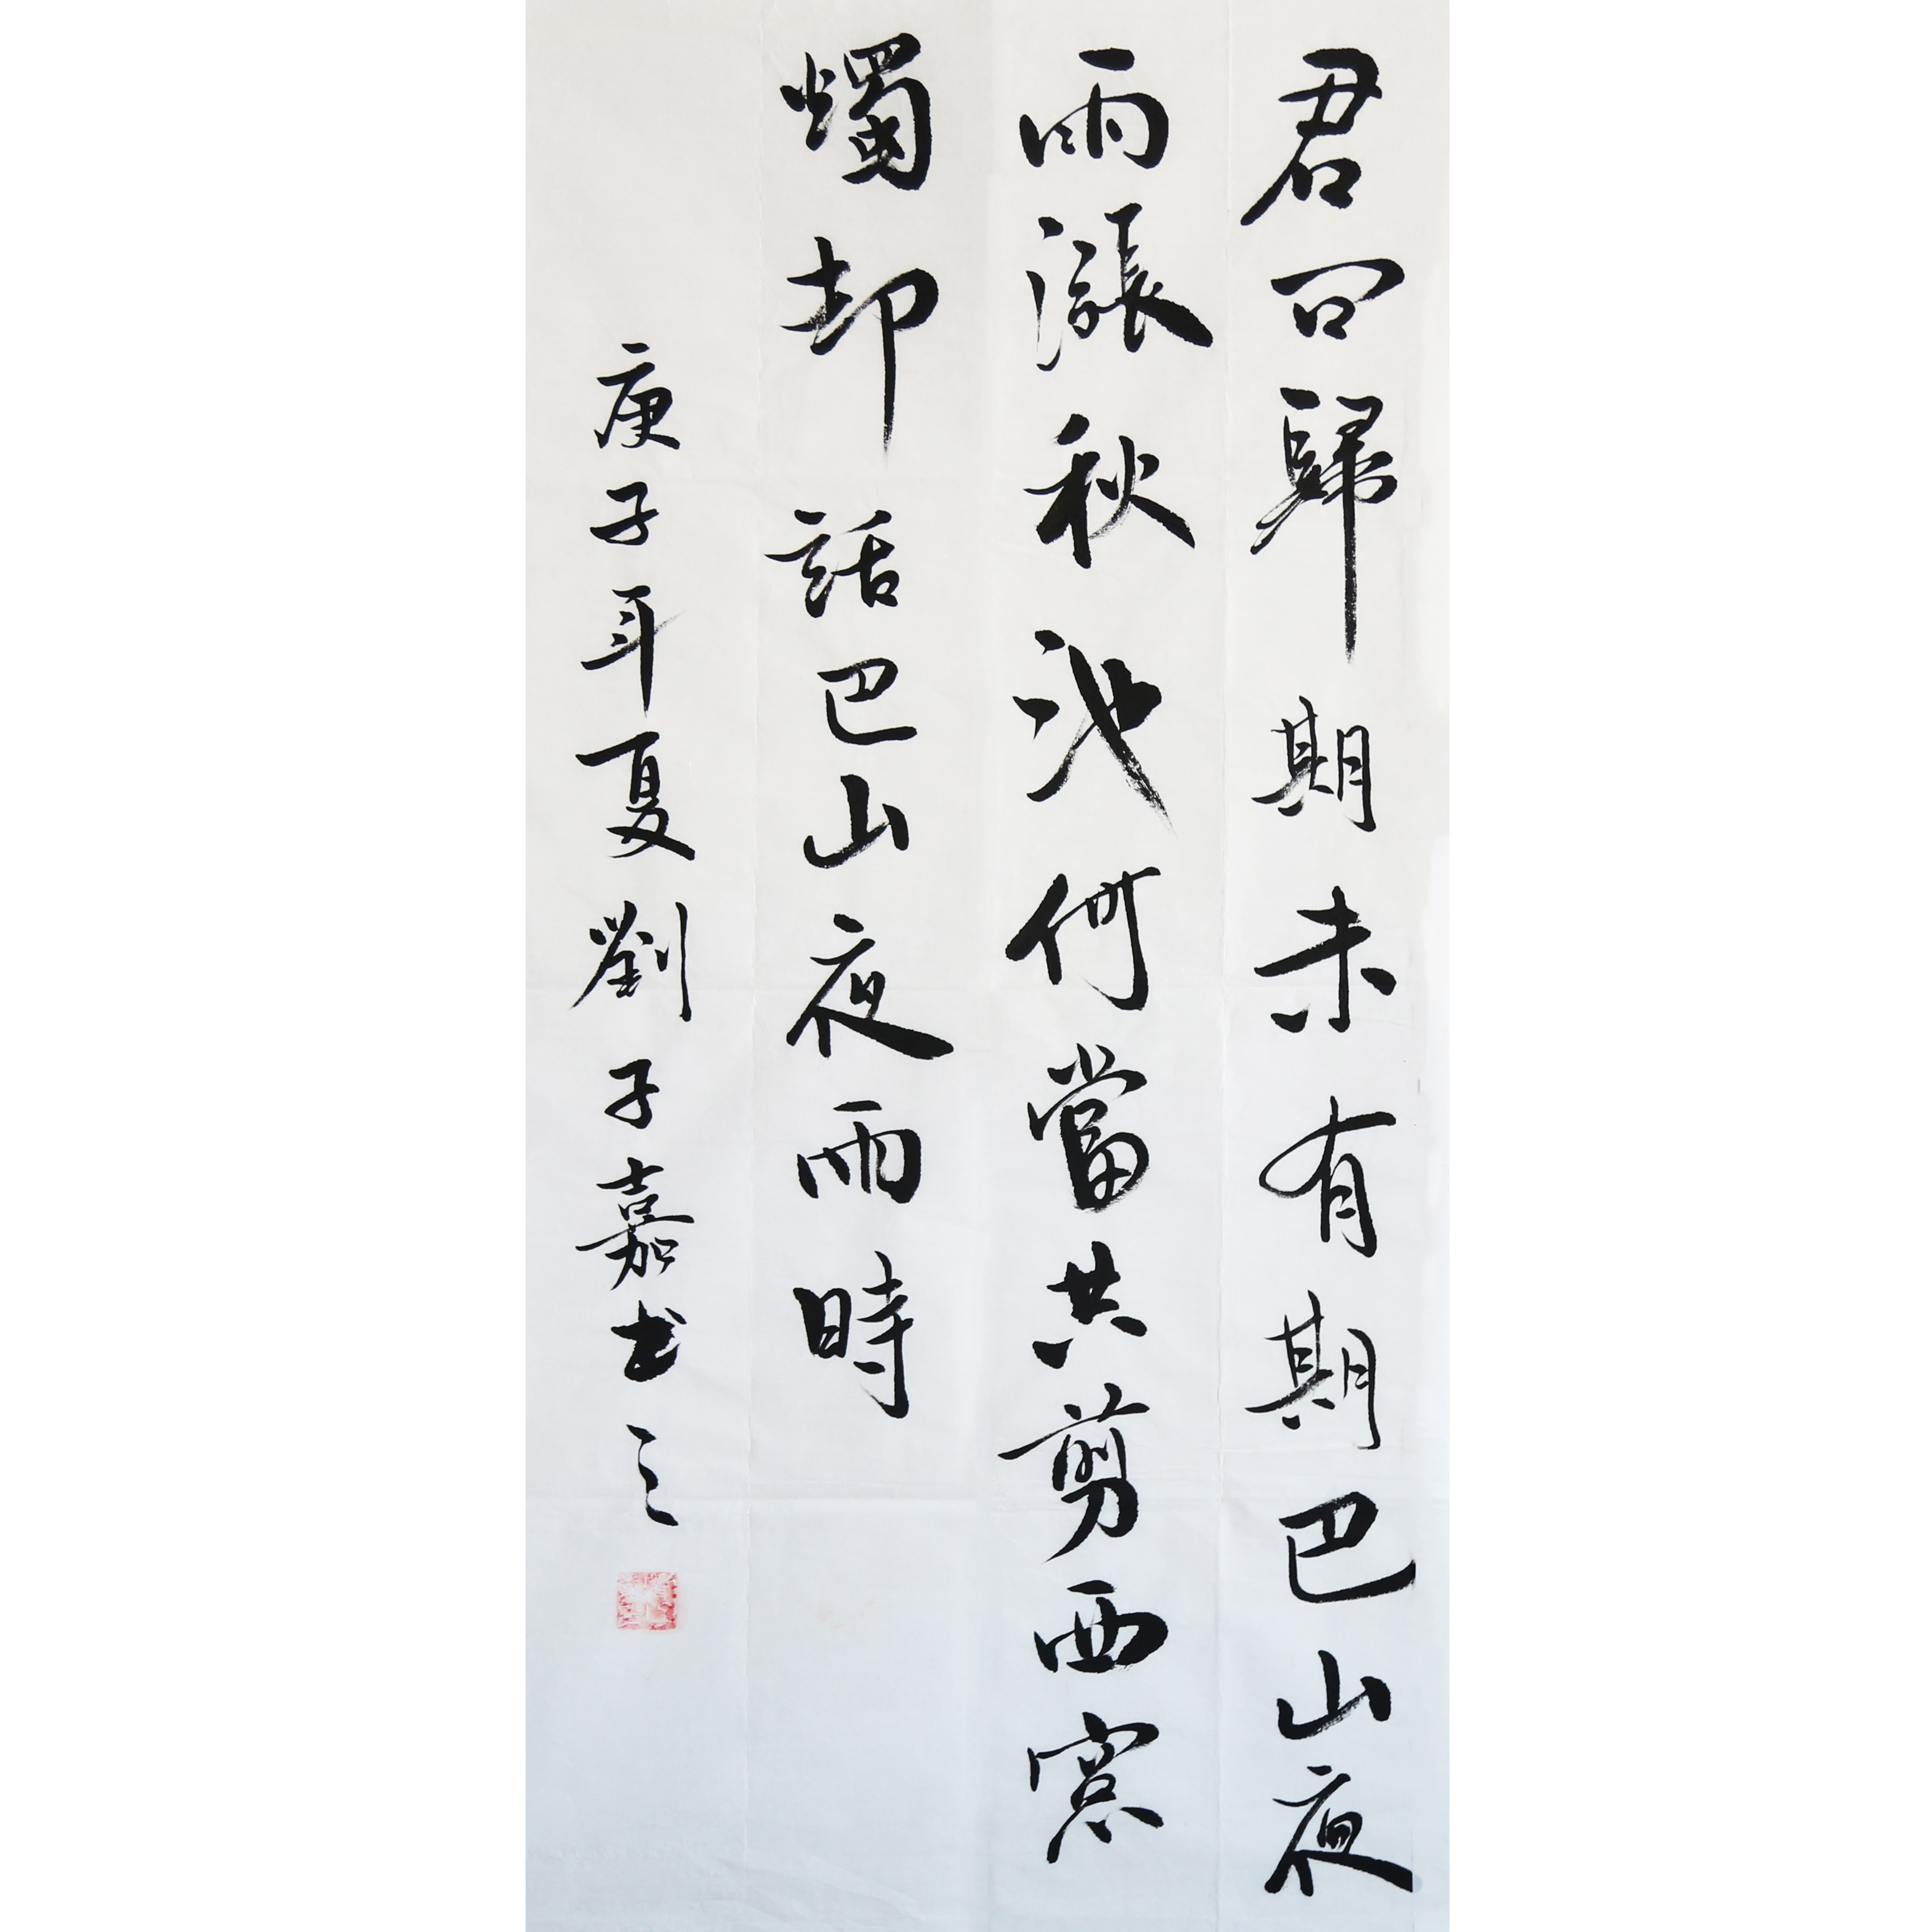 君問歸期未有期巴山夜
雨漲秋池何當共剪西窓
燭却話巴山夜雨時
庚子年夏劉子嘉書之